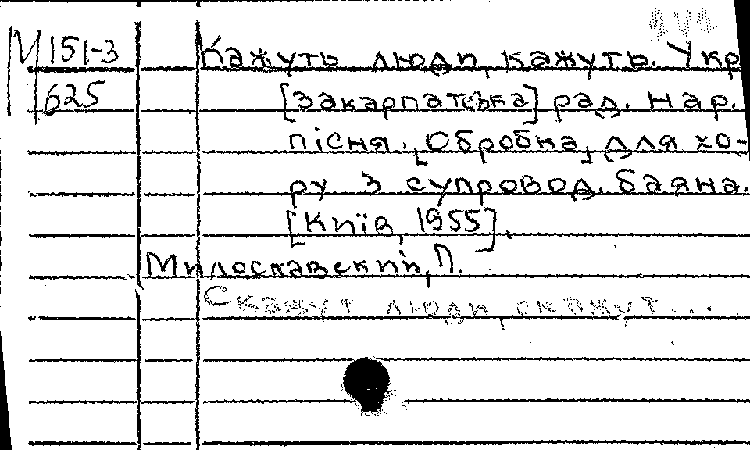 М 151-3
625
Кажуть люди, кажуть. Укр
[закарпатська] рад. нар.
пісня. [Обробка] для хо-
ру з супровод. баяна.
[Київ, 1955].
Милославский, П.
Скажут люди, скажут...